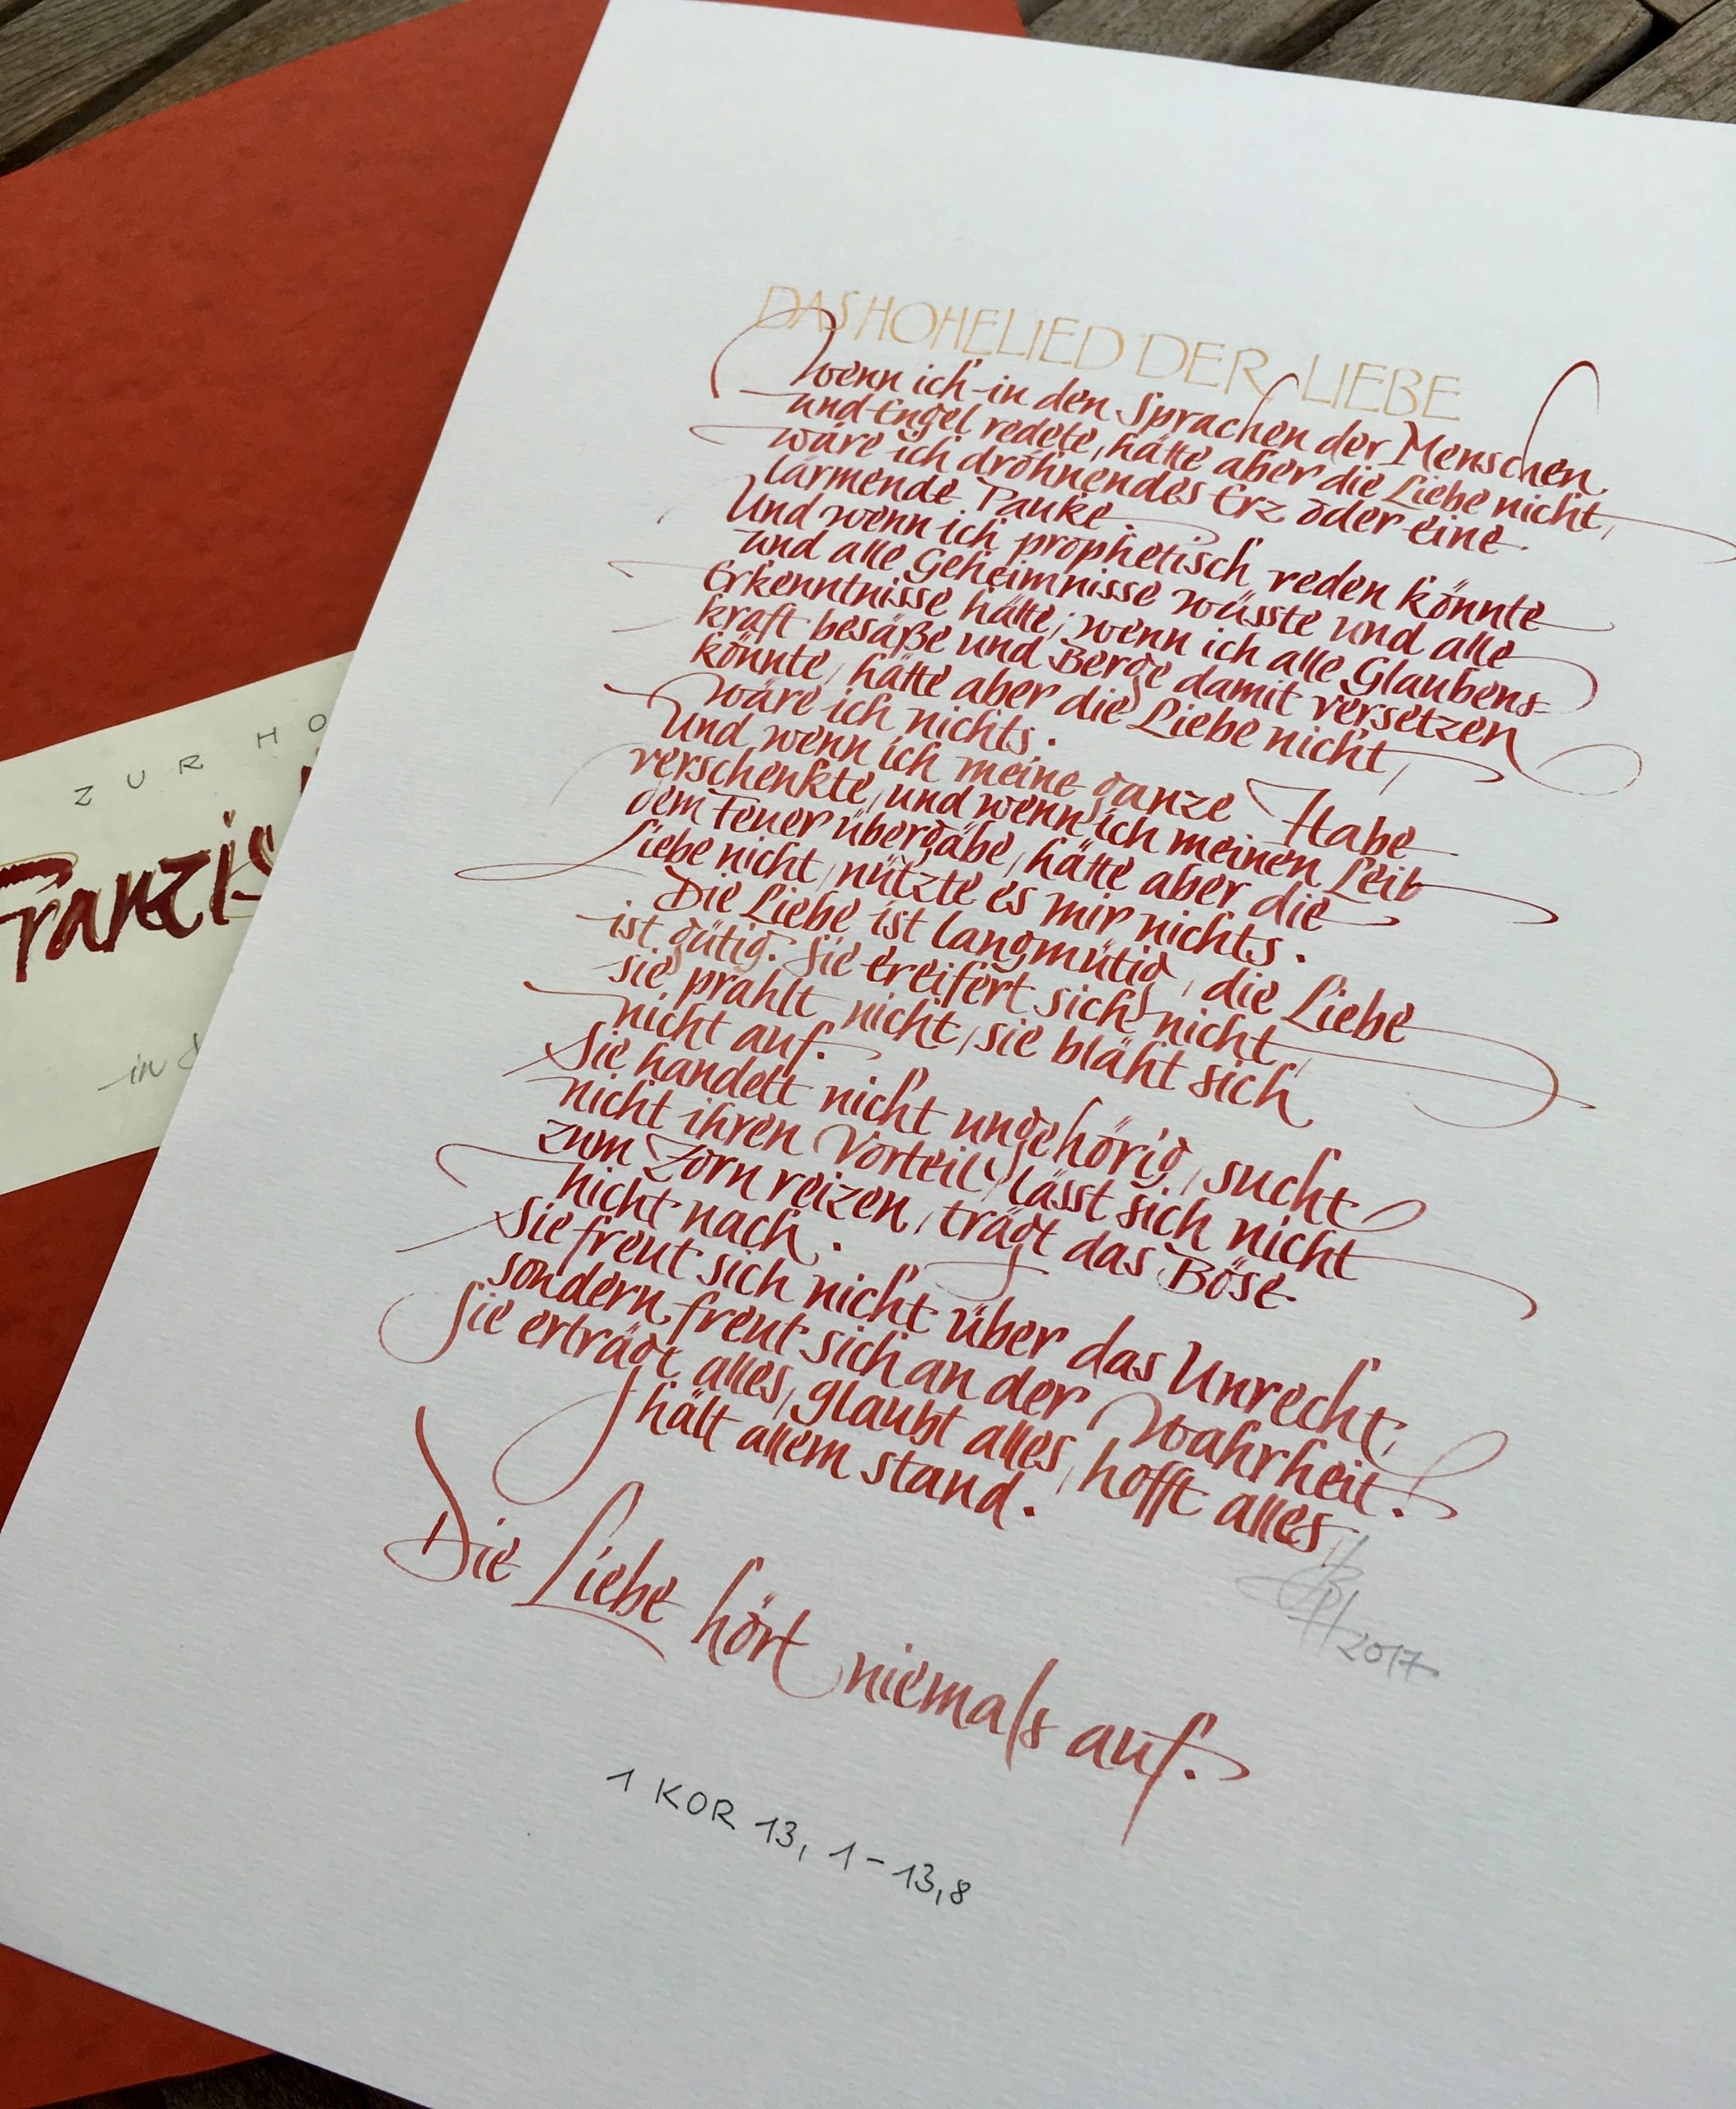 DAS HOHELIED DER LIEBE
Wenn ich in den Sprachen der Menschen
und Engel redete, hätte aber die Liebe nicht,
wäre ich dröhnendes Erz oder eine
lärmende Pauke.
Und wenn ich prophetisch reden könnte
und alle Geheimnisse wüsste und alle
Erkenntnisse hätte; wenn ich alle Glaubens-
kraft besäße und Berge damit versetzen
könnte, hätte aber die Liebe nicht,
wäre ich nichts.
Und wenn ich meine ganze Habe
verschenkte, und wenn ich meinen Leib
dem Feuer übergäbe, hätte aber die
Liebe nicht, nützte es mir nichts.
Die Liebe ist langmütig, die Liebe
ist gütig. Sie ereifert sich nicht,
sie prahlt nicht, sie bläht sich
nicht auf.
Sie handelt nicht ungehörig, sucht
nicht ihren Vorteil, lässt sich nicht
zum Zorn reizen, trägt das Böse
nicht nach.
Sie freut sich nicht über das Unrecht,
sondern freut sich an der Wahrheit.
Sie erträgt alles, glaubt alles, hofft alles,
hält allem stand.
Die Liebe hört niemals auf.
2017
1 KOR 13, 1-13,8
ZUR HO
Franzis
in